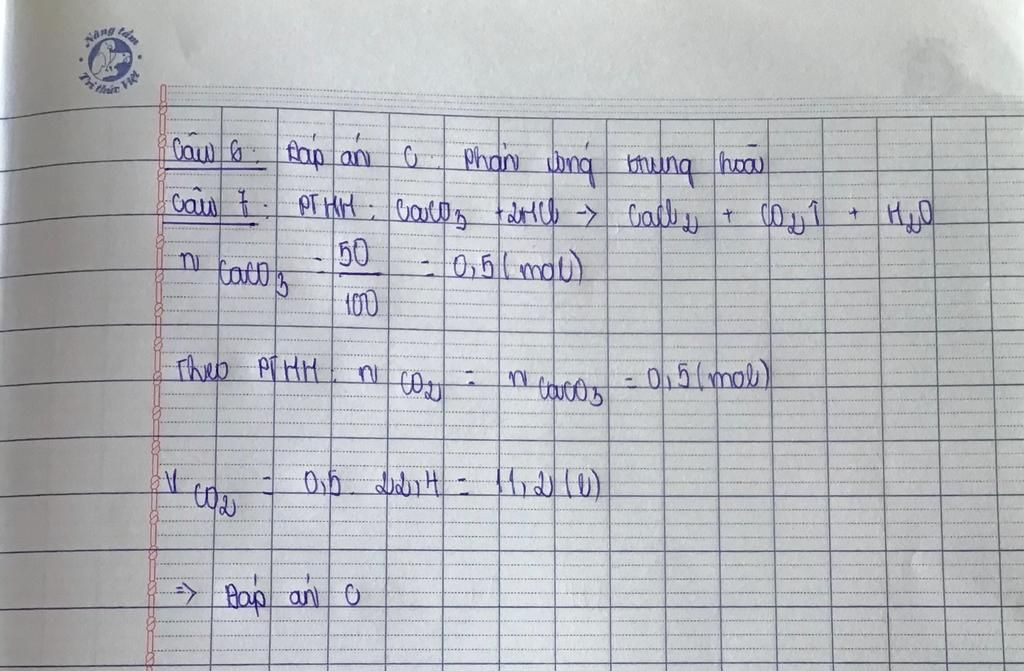 Nâng tầm
Tri thức Việt
Câu 6: Đáp án C. phản ứng trung hoà
Câu 7: PTHH: CaCO3 + 2HCl → CaCl2 + CO2↑ + H2O
n CaCO3 = 50/100 = 0,5 (mol)
Theo PTHH: n CO2 = n CaCO3 = 0,5 (mol)
V CO2 = 0,5. 22,4 = 11,2 (l)
=> Đáp án C